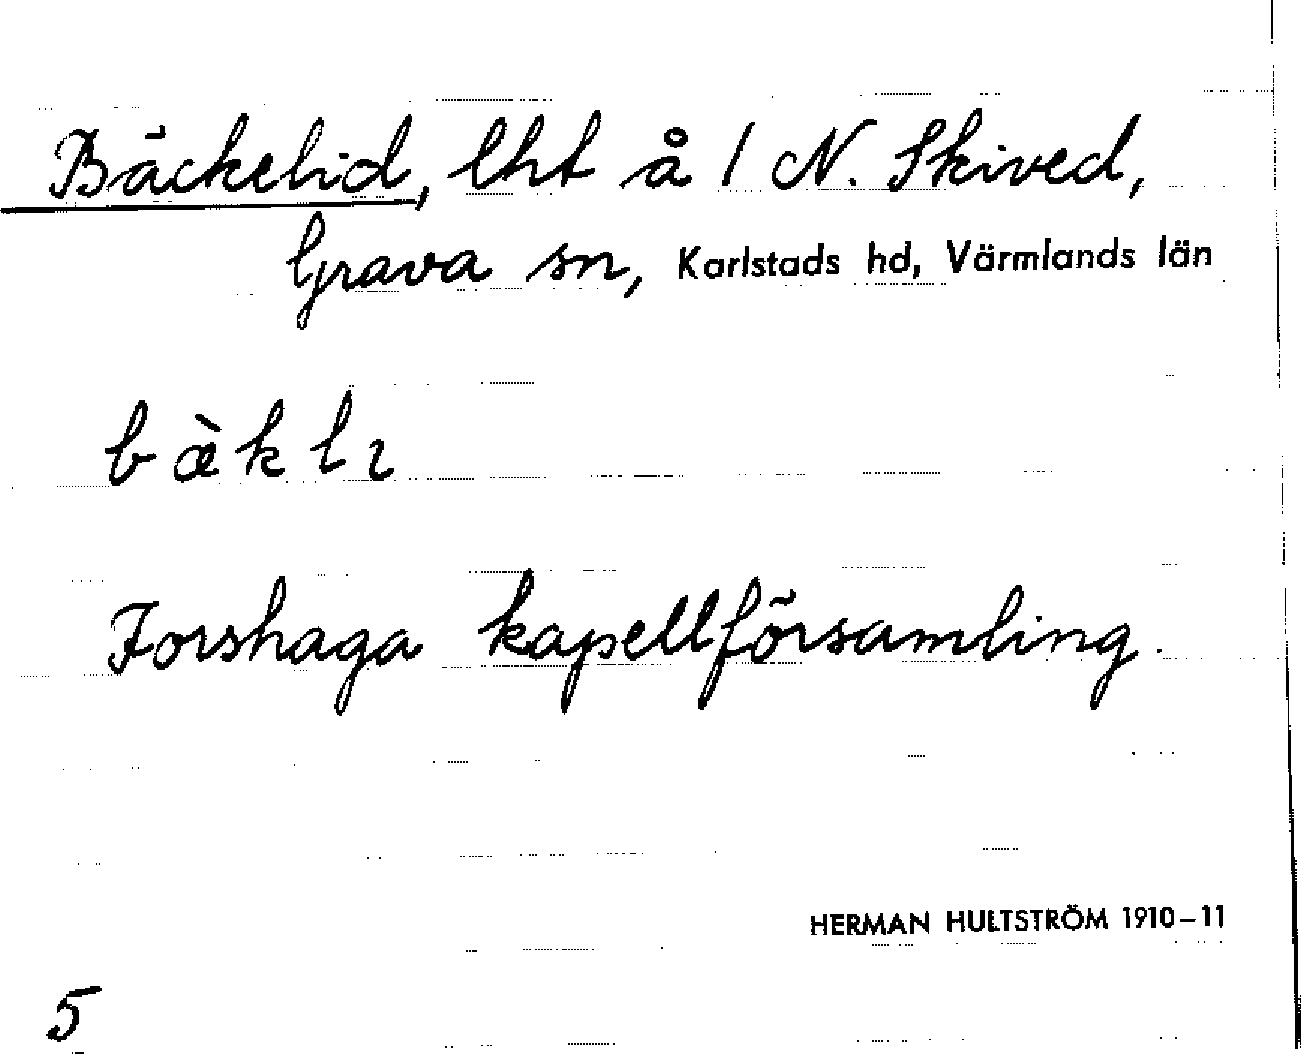 Bäckelid, lht å 1 N. Skived,
Grava sn, Karlstads hd, Värmlands län
bæ̀klɩ
Forshaga kapellförsamling.
HERMAN HULTSTRÖM 1910–11
5